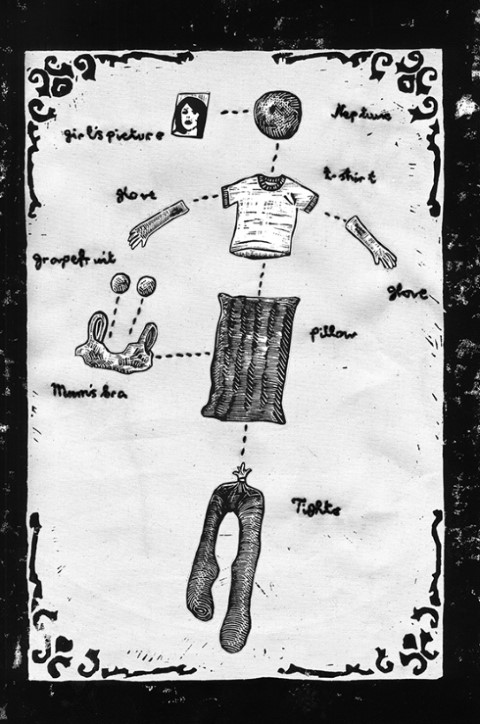 Neptune
girl's picture
t-shirt
glove
grapefruit
glove
pillow
Mum's bra
Tights